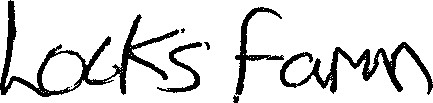 Locks farm